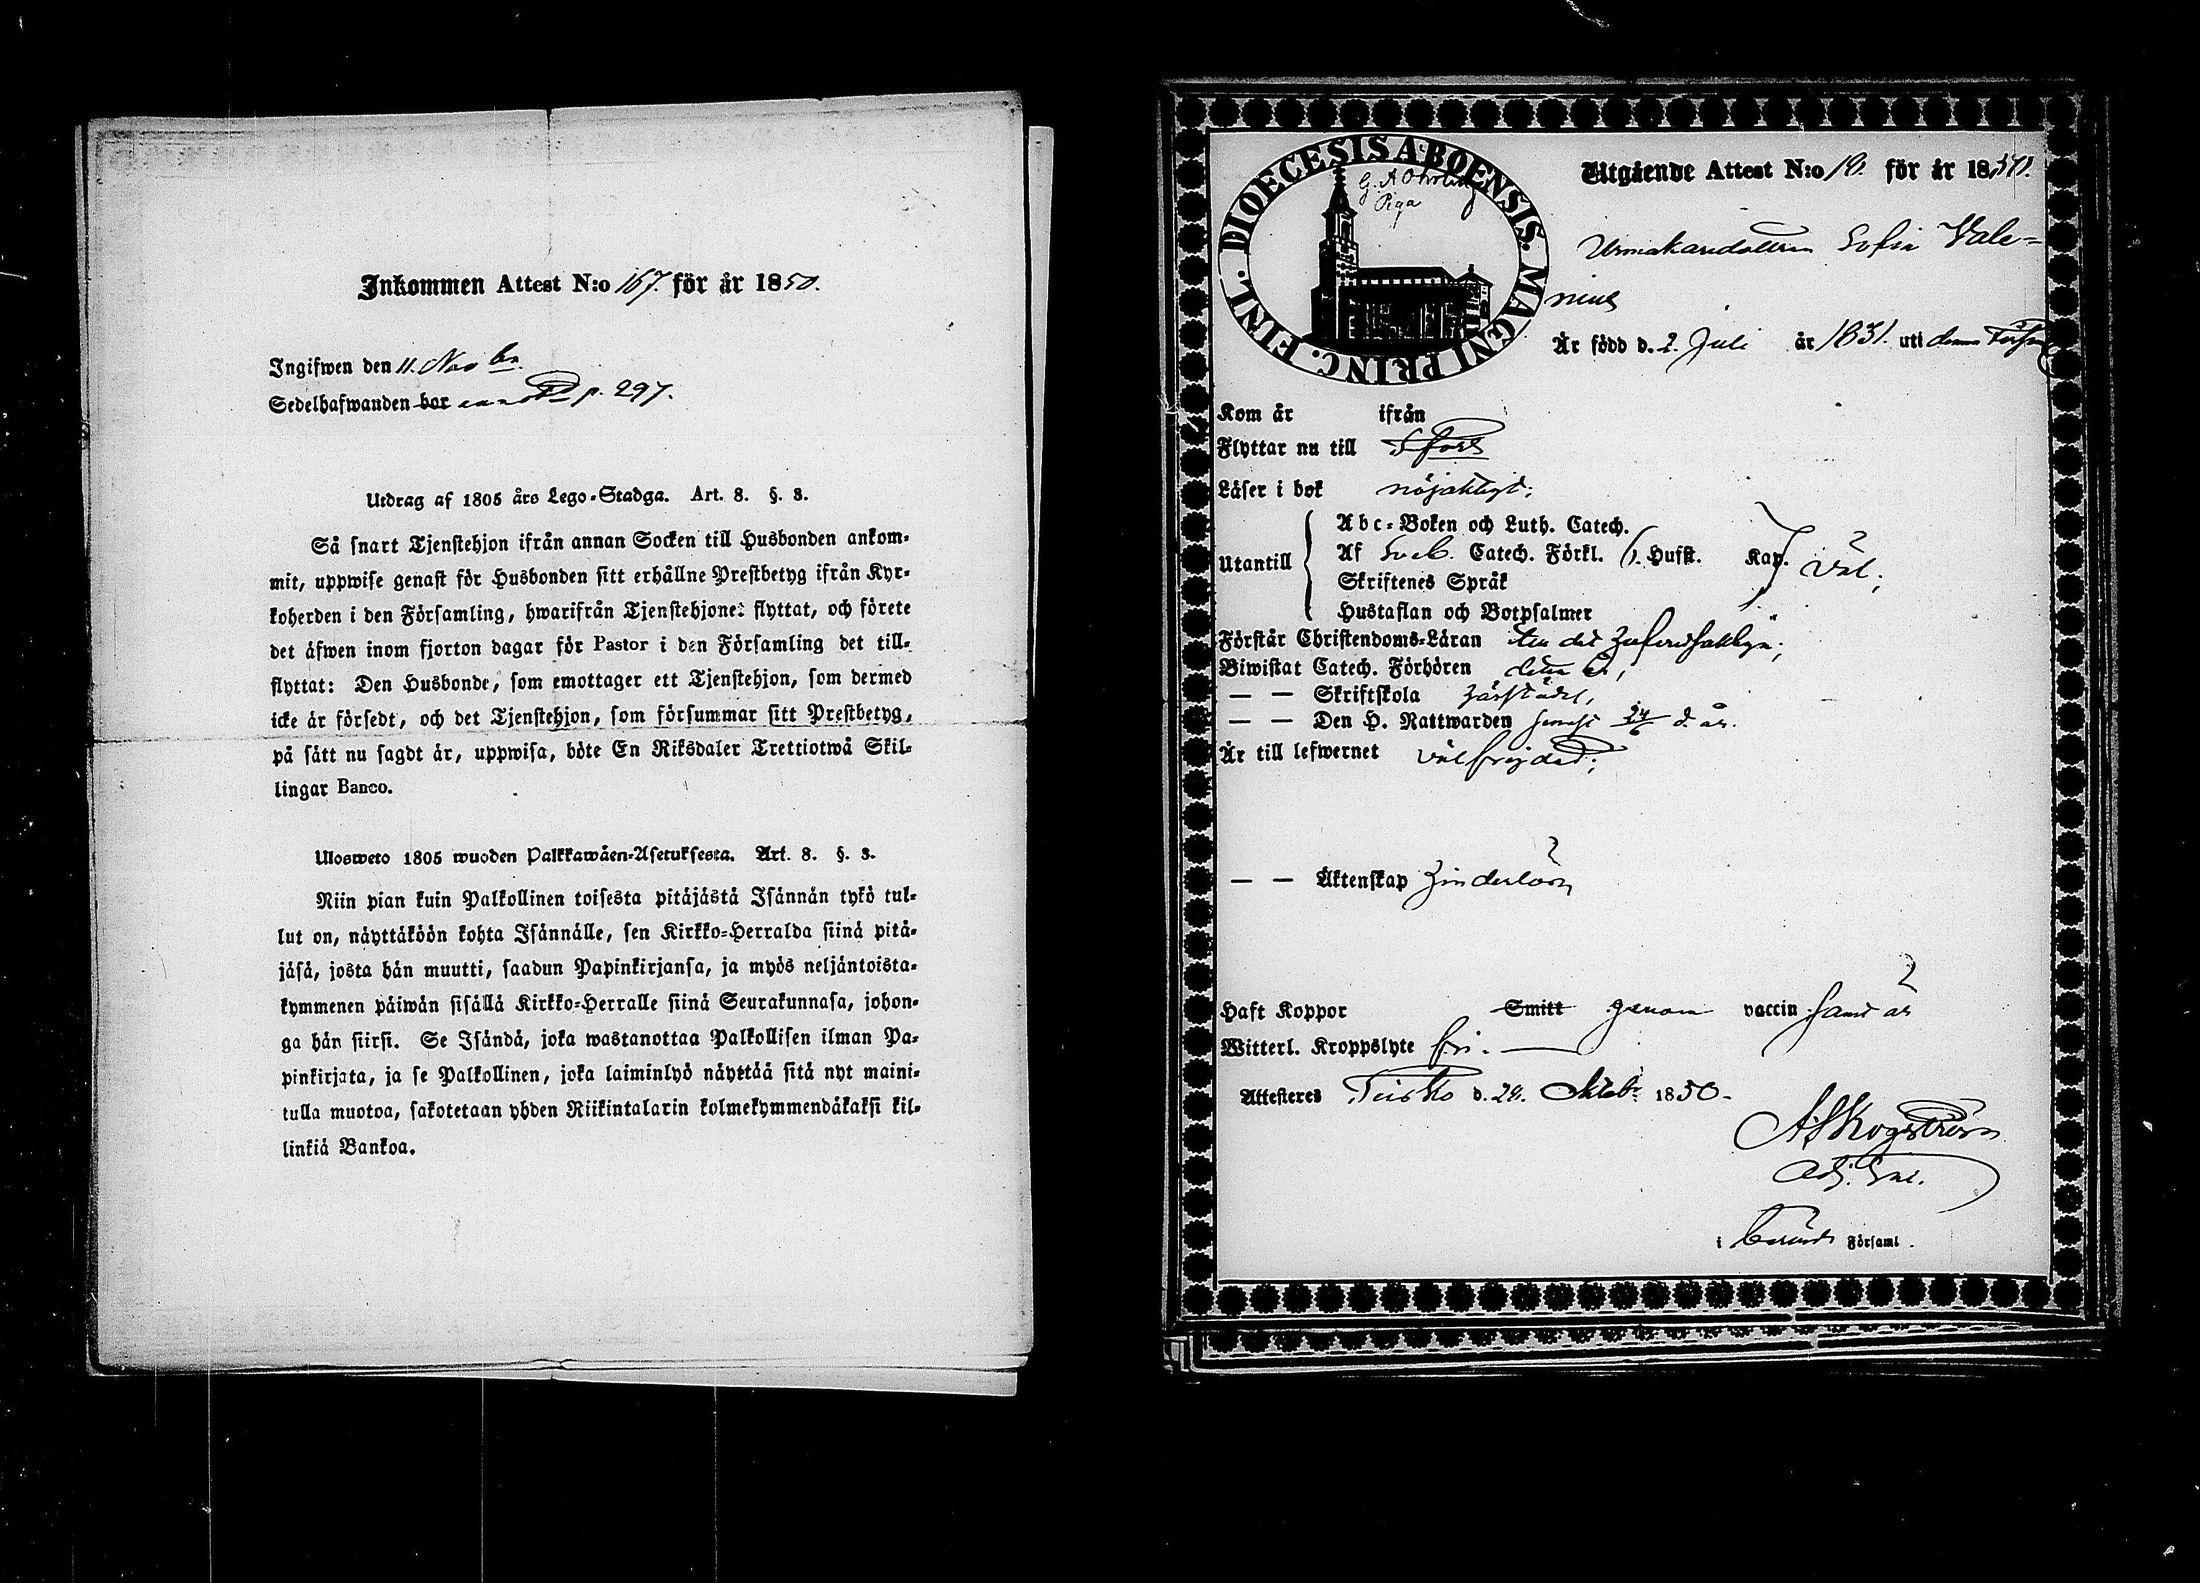 Inkommen Attest N:o 167. för år 1850.
Ingifwen den 11. Nov br.
Sedelhafwanden bor p. 297.
Utdrag af 1805 års Lego-Stadga. Art. 8. §. 3.
Så snart Tjenstehjon ifrån annan Socken till Husbonden ankom-
mit, uppwise genast för Husbonden sitt erhållne Prestbetyg ifrån Kyr-
koherden i den Församling, hwarifrån Tjenstehjonet flyttat, och förete
det äfwen inom fjorton dagar för Pastor i den Församling det till-
flyttat: Den Husbonde, som emottager ett Tjenstehjon, som dermed
icke är försedt, och det Tjenstehjon, som försummar sitt Prestbetyg,
på sätt nu sagdt är, uppwisa, böte En Riksdaler Trettiotwå Skil-
lingar Banco.
Ulosweto 1805 wuoden Palkkawäen-Asetuksesta. Art. 8. §. 3.
Niin pian kuin Palkollinen toisesta pitäjästä Isännän tykö tul-
lut on, näyttäköön kohta Isännälle, sen Kirkko-Herralda siinä pitä-
jäsä, josta hän muutti, saadun Papinkirjansa, ja myös neljäntoista-
kymmenen päiwän sisällä Kirkko-Herralle siinä Seurakunnasa, johon-
ga hän siirsi. Se Isändä, joka wastanottaa Palkollisen ilman Pa-
pinkirjata, ja se Palkollinen, joka laiminlyö näyttää sitä nyt maini-
tulla muotoa, sakotetaan yhden Riikintalarin kolmekymmendäkaksi kil-
linkiä Bankoa.
DIOECESIS ABOENSIS. MAGNI PRINC. FINL.
G. A
Piga
Utgående Attest N:o 19. för år 1850.
Urmakaredottren Sofia Vale-
nius
Är född d. 2. Juli år 1831. uti denna Förs
Kom år ifrån
Flyttar nu till T:fors
Läser i bok nöjaktigt;
Utantill
Abc-Boken och Luth. Catech.
Af Sveb. Catech. Förkl. Hufst. Kap. Väl;
Skriftenes Språk
Hustaflan och Botpsalmer
Förstår Christendoms-Läran
Biwistat Catech. Förhören
— — Skriftskola
— — Den H. Nattwarden senast 24/6 d. år.
Är till lefwernet välfrejdad;
— — Äktenskap hinderlös
Haft Koppor Smitt genom vaccin samt är
Witterl. Kroppslyte fri.
Attesteres Teisko d. 29. Oktob: 1850.
A Skogström
Adj.
i Församl.